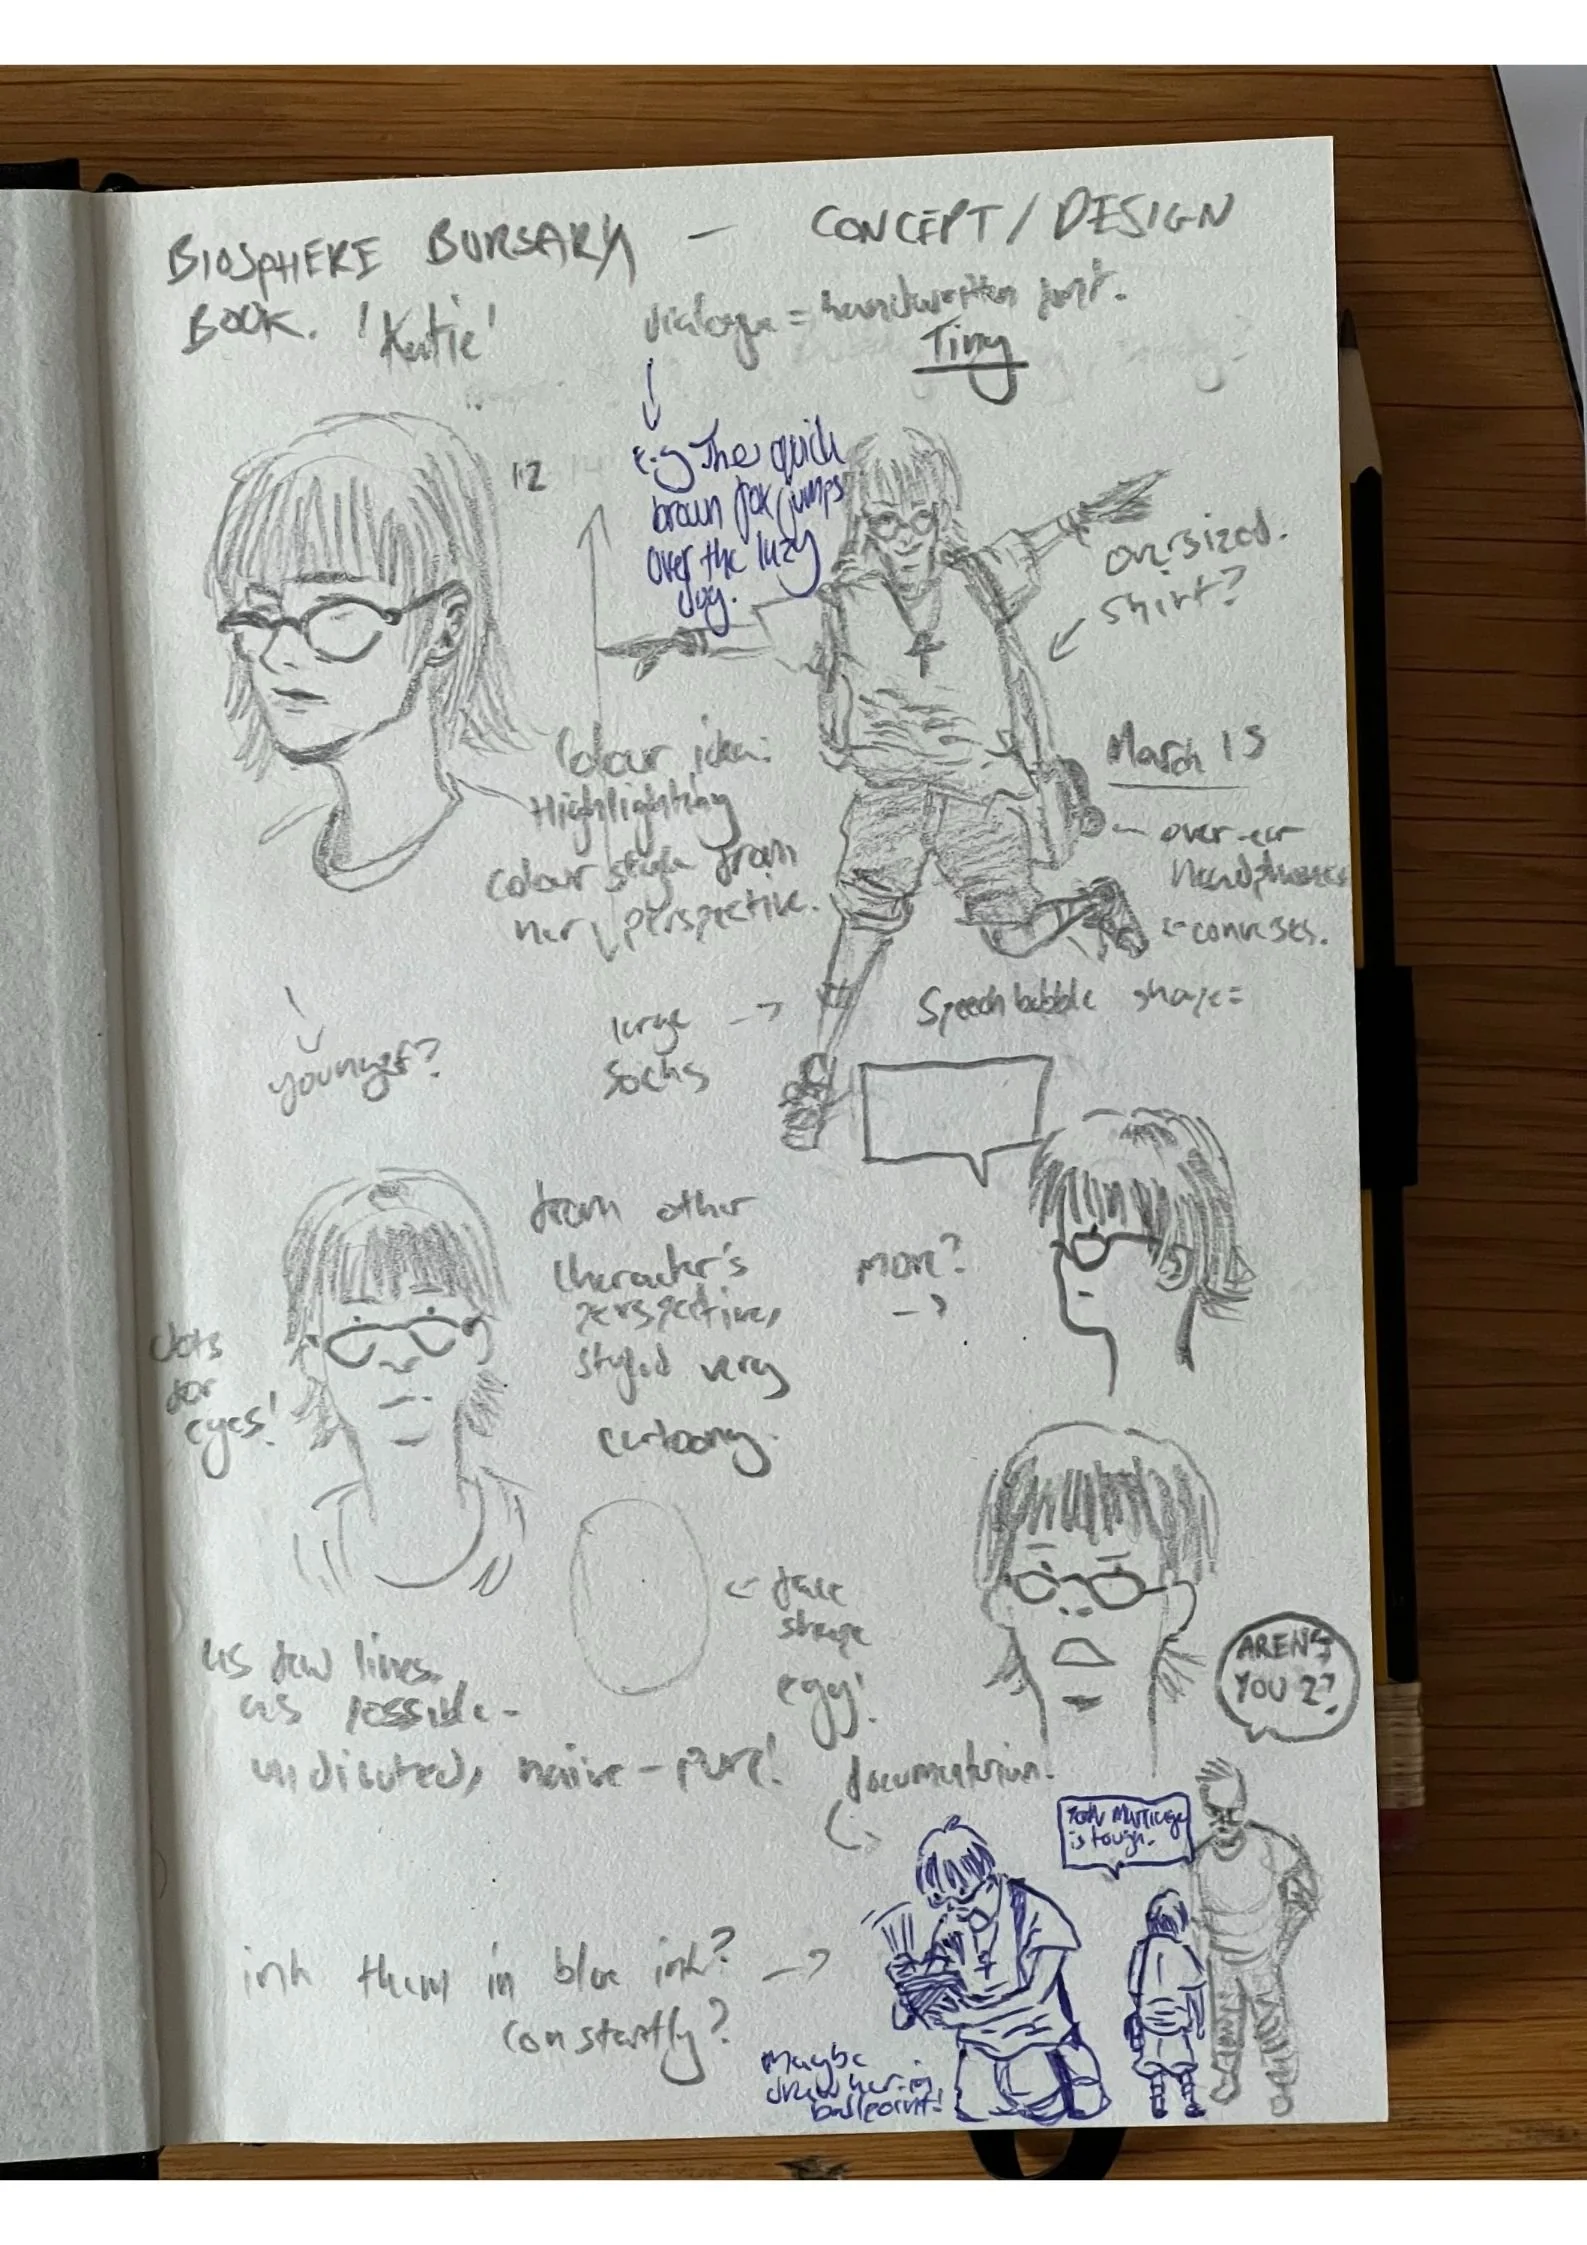 BIOSPHERE BURSARY — CONCEPT/DESIGN
BOOK. 'Katie'
dialogue = handwritten font.
Tiny
e.g The quick
brown fox jumps
over the lazy
dog.
12
oversized.
shirt?
Colour idea:
Highlighting
colour style from
her perspective.
March 15
over-ear
headphones
converses.
large
socks
Speech bubble shape =
younger?
from other
character's
perspective,
styled very
cartoony.
more?
dots
for
eyes!
face
shape
egg!
as few lines
as possible -
undiluted, naive - pure!
AREN'T
YOU 2?
documentarian.
marriage
is tough.
ink them in blue ink?
constantly?
Maybe
draw her in
ballpoint!